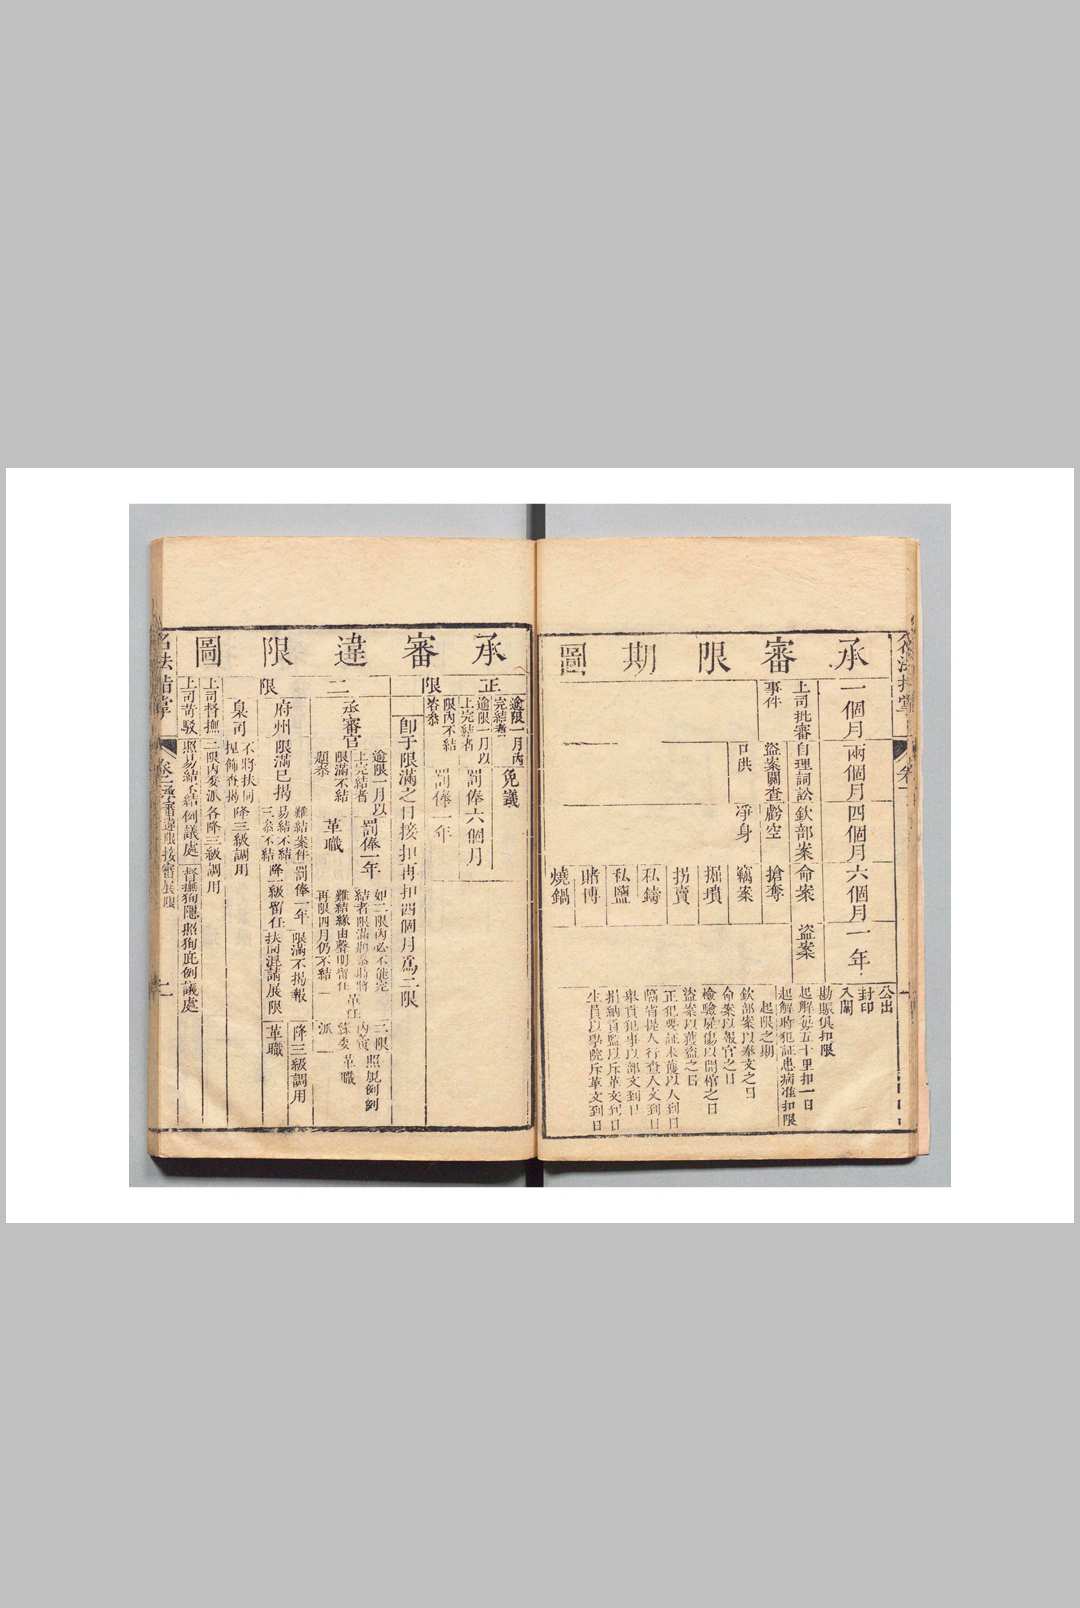 承審限期圖
一個月
兩個月
四個月
六個月
一年
上司批審
事件
自理詞訟
盜案關查
口供
欽部案
虧空
凈身
命案
搶奪
竊案
掘墳
拐賣
私鑄
私鹽
賭博
燒鍋
盜案
公出
封印
入闈
勘賬俱扣限
起解每五十里扣一日
起解時犯証患病准扣限
起限之期
欽部案以奉文之日
命案以報官之日
檢驗屍傷以開棺之日
盜案以獲盜之日
正犯要証未獲以人到日
隔省提人行查人文到日
舉貢犯事以部文到日
捐納貢監以斥革文到日
生員以學院斥革文到日
承審違限圖
正限
逾限一月內
完結者
免議
逾限一月以
上完結者
罰俸六個月
限內不結
咨參
罰俸一年
二限
即于限滿之日接扣再扣四個月為二限
承審官
逾限一月以
上完結者
罰俸一年
限滿不結
題參
革職
如二限內必不能完
難結緣由聲明留任
再限四月仍不結
府州
限滿已揭
難結案件
罰俸一年
易結不結
三參不結
降一級留任
限滿不揭報
降三級調用
扶同混請展限
革職
臬司
不將扶同
捏飾查揭
降三級調用
上司督撫
二限內委派
各降三級調用
上司苛駁
照易結不結例議處
督撫狥隱
照狥庇例議處
名法指掌